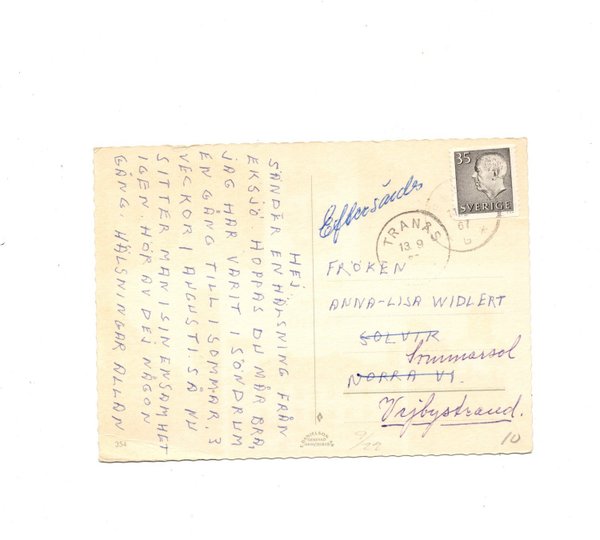 HEJ.
SÄNDER EN HÄLSNING FRÅN
EKSJÖ. HOPPAS DU MÅR BRA,
JAG HAR VARIT I SÖNDRUM
EN GÅNG TILL I SOMMAR. 3
VECKOR I AUGUSTI. SÅ NU
SITTER MAN I SIN ENSAMHET
IGEN. HÖR AV DEJ NÅGON
GÅNG. HÄLSNINGAR ALLAN
354
Eftersändes
35
SVERIGE
TRANÅS
13.9
67
FRÖKEN
ANNA-LISA WIDLERT
SOLVIK
NORRA VI.
Sommarsol
Vejbystrand.
10